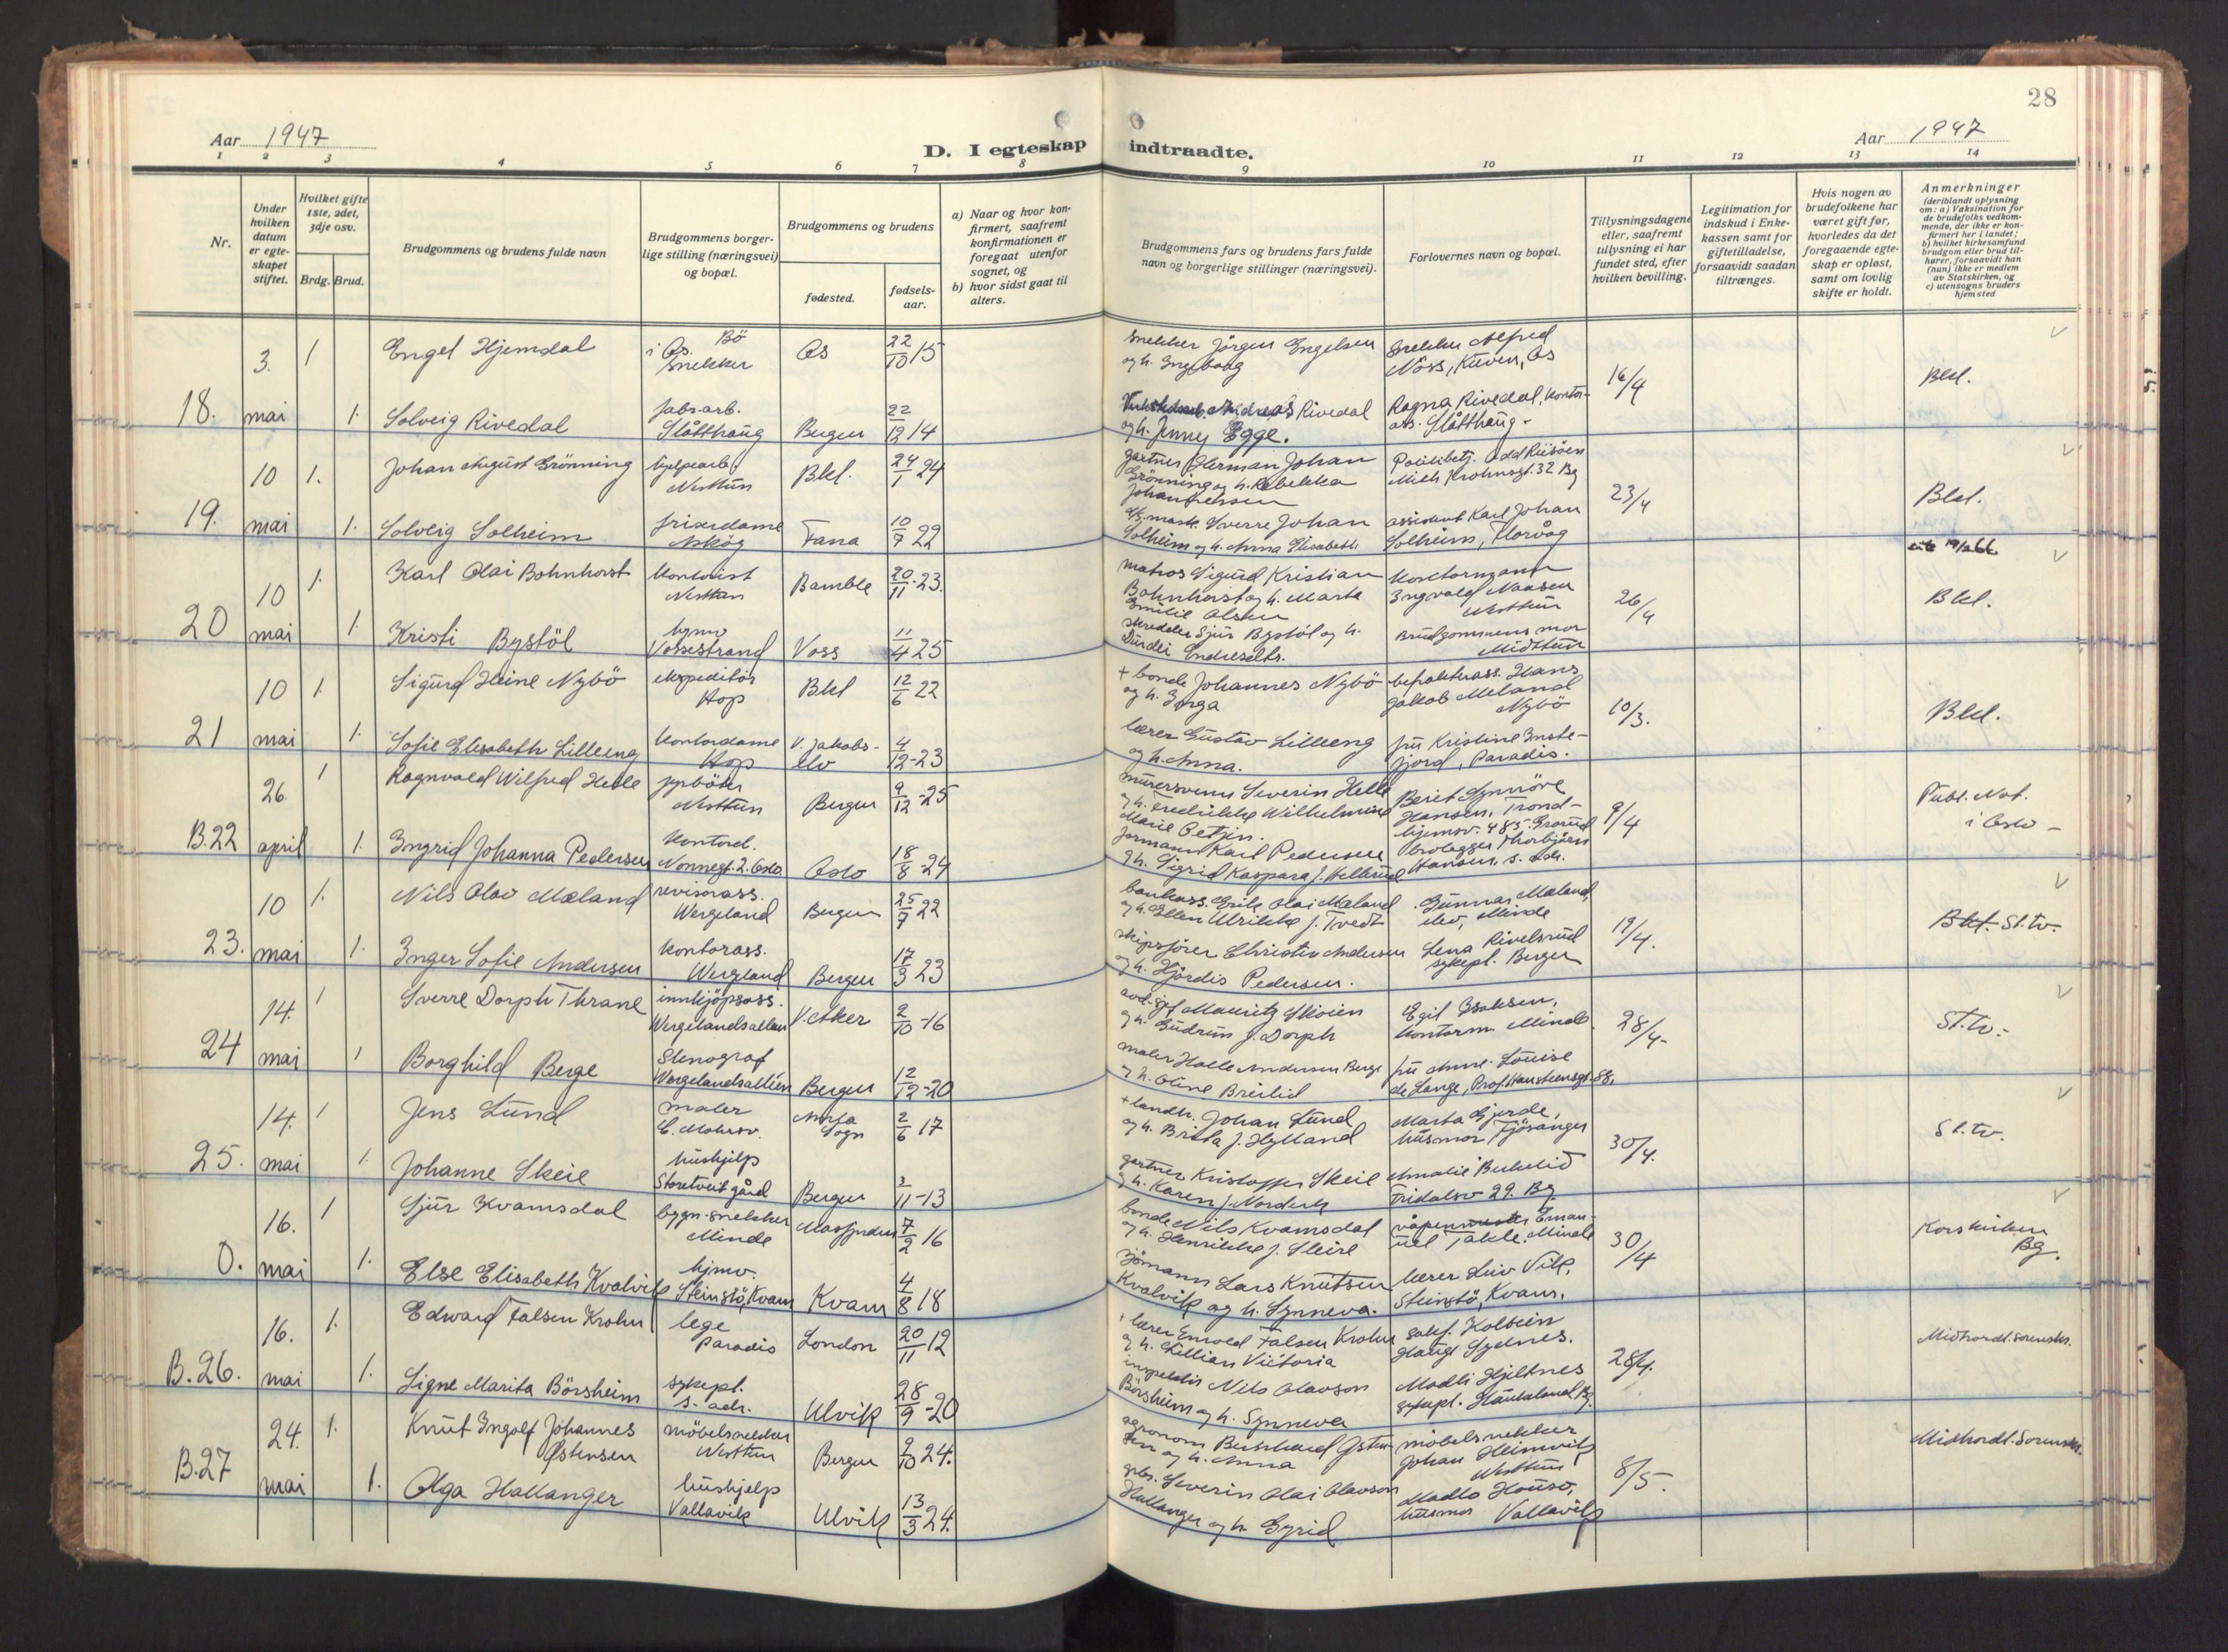 28
Aar 1947
D. I egteskap indtraadte.
Aar 1947
1 2 3 4 5 6 7 8 9 10 11 12 13 14
Nr.
Under hvilken datum er egteskapet stiftet.
Hvilket gifte 1ste, 2det, 3dje osv.
Brdg. Brud.
Brudgommens og brudens fulde navn
Brudgommens borgerlige stilling (næringsvei) og bopæl.
Brudgommens og brudens
fødested.
fødselsaar.
a) Naar og hvor konfirmert, saafremt konfirmationen er foregaat utenfor sognet, og
b) hvor sidst gaat til alters.
Brudgommens fars og brudens fars fulde navn og borgerlige stillinger (næringsvei).
Forlovernes navn og bopæl.
Tillysningsdagene eller, saafremt tillysning ei har fundet sted, efter hvilken bevilling.
Legitimation for indskud i Enkekassen samt for giftetilladelse, forsaavidt saadan tiltrænges.
Hvis nogen av brudefolkene har været gift før, hvorledes da det foregaaende egteskap er opløst, samt om lovlig skifte er holdt.
Anmerkninger (deriblandt oplysning om: a) Vaksination for de brudefolks vedkommende, der ikke er konfirmert her i landet; b) hvilket kirkesamfund brudgom eller brud tilhører, forsaavidt han (hun) ikke er medlem av Statskirken, og c) utensogns bruders hjemsted
18. 3. mai
1 Engel Hjemdal i Os. Bö snekker Os 22/10 15
snekker Jörgen Engelsen og h. Ingeborg
snekker Alfred Näss, Kuven, Os
16/4 Bkl.
1. Solveig Rivedal fabr.arb. Slåtthaug Bergen 22/12 14
Andreas Rivedal og h. Jenny Egge.
Ragna Rivedal, kontor- ass. Slåtthaug
19. 10 mai
1. Johan August Grönning hjelpearb. Nesttun Bkl. 24/1 24
gartner Herman Johan Grönning og h. Rebekka Johannessen
Politibetj. Odd Riisöen Mich Krohnsgt. 32 Bg
23/4 Bkl.
1. Solveig Solheim friserdame Askög Fana 10/7 22
Sverre Johan Solheim og h. Anna Elisabeth
assistent Karl Johan Solheim, Florvåg
20 10 mai
1. Karl Olai Bohnhorst Nesttun Bamble 20/11-23.
matros Sigurd Kristian Bohnhorst og h. Marta Emilie Olsen
kontormann Ingvald Naasen Nesttun
26/4 Bkl.
1. Kristi Bystöl hjmv Vossestrand Voss 11/4 25
skredder Sjur Bystöl og h. Durdei Endresdtr.
Brudgommens mor Midttun
21 10 mai
1. Sigurd Heine Nybö ekspeditör Hop Bkl 12/6 22
+ bonde Johannes Nybö og h. Inga
Hans Jakob Meland Nybö
10/3. Bkl.
1. Sofie Elisabeth Lilleeng kontordame Hop V. Jakobs- elv 4/12-23
lærer Gustav Lilleeng og h. Anna.
fru Kristine Inste- fjord, Paradis.
B.22 26. april
1 Ragnvald Wilfred Helle Nesttun Bergen 9/12-25
murersvenn Severin Helle og h. Fredrikke Wilhelmine Marie Getzin.
Berit Synnöve Hansen, Trond- hjemsv. 485. Grorud brolegger Thorbjörn Hansen, s. adr.
9/4 Publ. Not. i Oslo -
1. Ingrid Johanna Pedersen kontord. Nonnegt. 2. Oslo Oslo 18/8-24
formann Karl Pedersen og h. Sigrid Kaspara J. Hellerud
23. 10 mai
1. Nils Olav Mæland revisorass. Wergeland Bergen 25/7 22
bankass. Erik Olai Mæland og h. Ellen Ulrikke f. Tvedt
Gunnar Mæland, elev, Minde
19/4. Bkl. St.tv.
1. Inger Sofie Andersen kontorass. Wergeland Bergen 17/3 23
skipsförer Christin Andersen og h. Hjördis Pedersen.
Lena Rivelsrud sykepl. Bergen
24 14. mai
1 Sverre Dorph Thrane innkjöpsass. Wergelandsalleen V. Aker 2/10-16
Mauritz Skoien og h. Gudrun f. Dorph
Egil Isaksen, kontorm. Minde.
28/4- St.tv.-
1 Borghild Berge Stenograf Wergelandsalléen Bergen 12/12-20
maler Halle Andersen Berge og h. Oline Breilid
fru Anne-Louise de Lange, Prof. Hansteensgt. 58.
25. 14. mai
1 Jens Lund maler C. Mohrsv. Sogn 2/6 17
+ landh. Johan Lund og h. Brita f. Hylland
Marta Gjerde, husmor, Fjösanger
30/4. St.tv.
1. Johanne Skeie hushjelp Storetveit gård Bergen 3/11-13
gartner Kristoffer Skeie og h. Karen f. Nordvik
Amalie Birkelid Fridalsv 29. Bg.
0. 16. mai
1 Sjur Kvamsdal bygn.snekker Minde Masfjorden 7/2 16
bonde Nils Kvamsdal og h. Henrikke f. Steire
våpenmester Eman- uel Takle. Minde
30/4 Korskirken Bg.
1. Else Elisabeth Kvalvik hjmv. Steinstö, Kvam Kvam 4/8 18
Sjömann Lars Knutsen Kvalvik og h. Synneva.
lærer Leiv Vik, Steinstö, Kvam.
B.26. 16. mai
1. Edward Falsen Krohn lege Paradis London 20/11-12
+ lærer Falsen Krohn og h. Lillian Victoria
Kolbein Hauge Sydnes.
28/4. Midhordl. sorensk.
1. Signe Marita Börsheim sykepl. s. adr. Ulvik 28/9-20
Nils Olavson Börsheim og h. Synneva
Madli Hjeltnes sykepl. Haukeland Bg.
B.27 24. mai
1. Knut Ingolf Johannes Østensen möbelsnekker Nesttun Bergen 2/10 24.
agronom Bernhard Østen- sen og h. Anna
möbelsnekker Johan Heimvik Nesttun
8/5. Midhordl. Sorensk.
1. Olga Hallanger hushjelp Vallavik Ulvik 13/3 24.
gbr. Severin Olai Olavson Hallanger og h. Gyrid
Madla House, husmor Vallavik